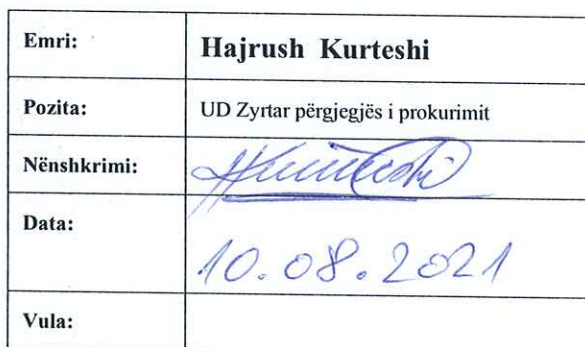 Emri: Hajrush Kurteshi
Pozita: UD Zyrtar përgjegjës i prokurimit
Nënshkrimi: HKurteshi
Data: 10.08.2021
Vula: